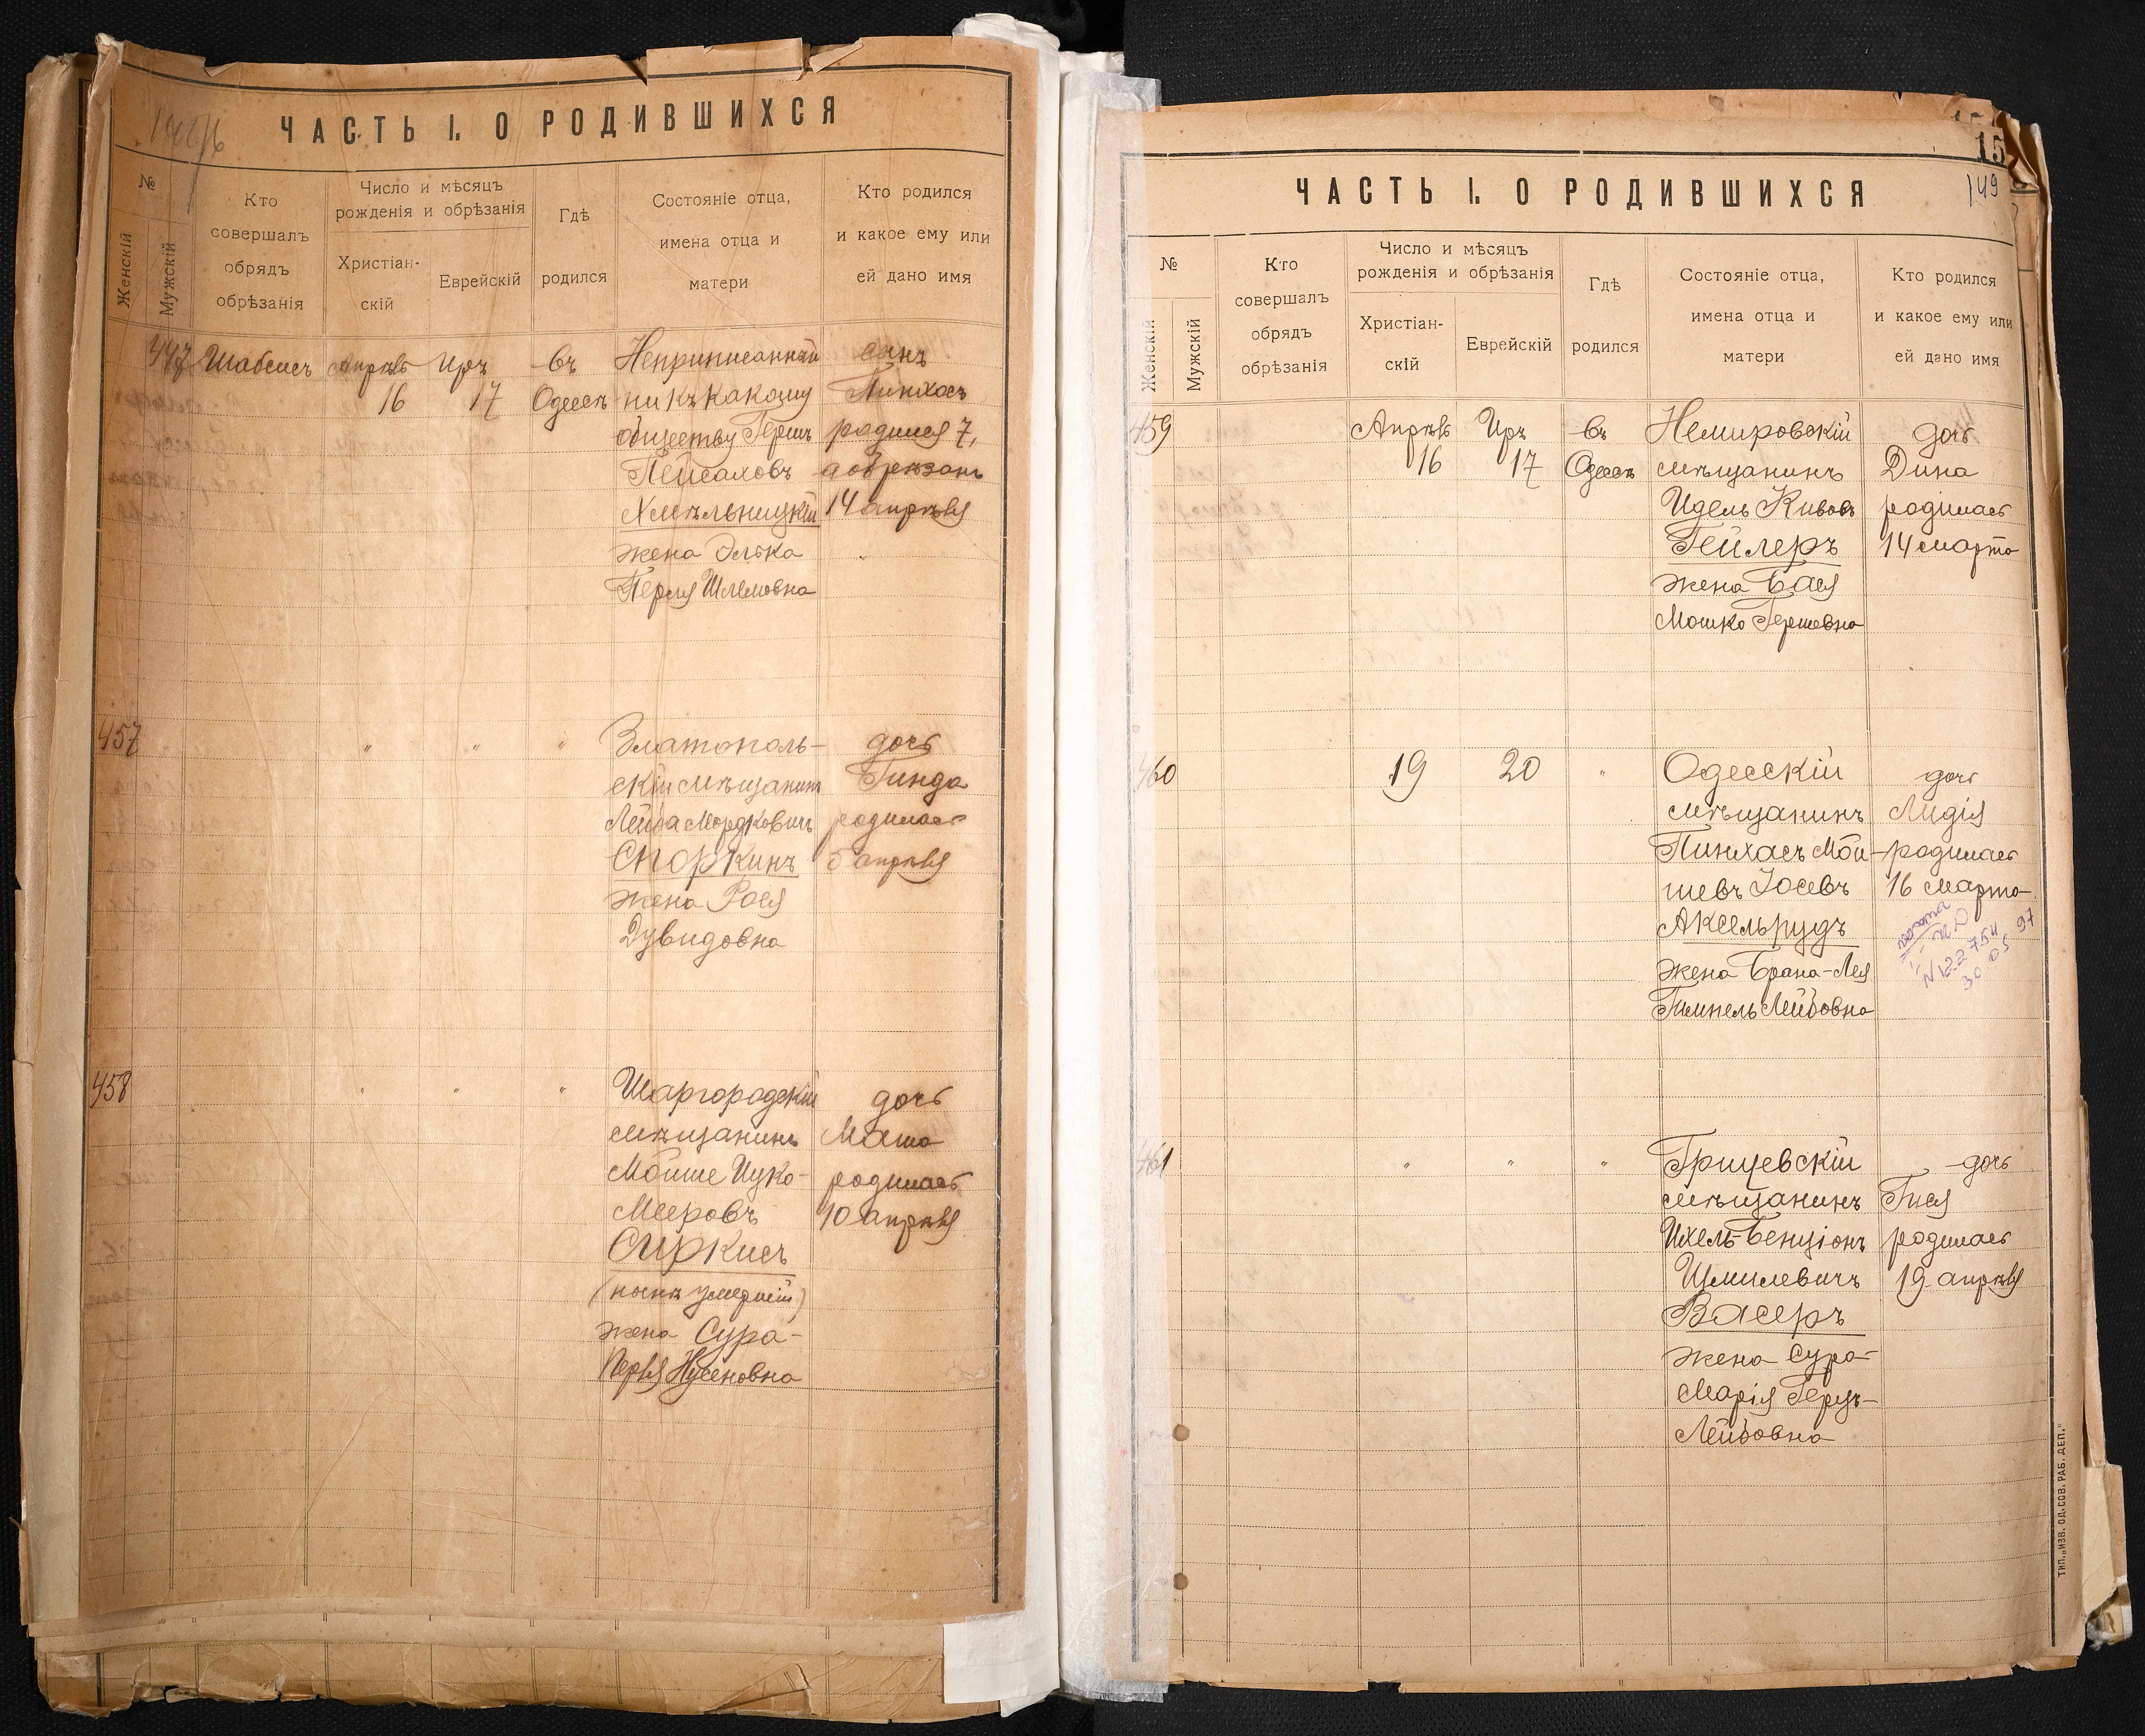 ЧАСТЬ I. О РОДИВШИХСЯ
№
Женскій
Мужскій
Кто
совершалъ
обрядъ
обрѣзанія
Число и мѣсяцъ
рожденія и обрѣзанія
Христіан-
скій
Еврейскій
Гдѣ
родился
Состояніе отца,
имена отца и
матери
Кто родился
и какое ему или
ей дано имя
447 Шабсисъ Апрѣль Иръ въ Неприписанный сынъ
16 17 Одессѣ ни къ какому Пинхасъ
обществу Гершъ родился 7,
Пейсаховъ а обрѣзанъ
Хмѣльницкій 14 апрѣля
жена Элька
Перля Шлемовна
457 " " " Златополь- дочь
скій мѣщанинъ Гинда
Лейба Мордковичъ родилась
Споркинъ 5 апрѣля
жена Рося
Дувидовна
458 " " " Шаргородскій дочь
мѣщанинъ
Мойше Ицко- родилась
Мееровъ 10 апрѣля
Сиркисъ
(нынѣ умершій)
жена Сура-
Перля Нусеновна
15
149
ЧАСТЬ I. О РОДИВШИХСЯ
№
Женскій
Мужскій
Кто
совершалъ
обрядъ
обрѣзанія
Число и мѣсяцъ
рожденія и обрѣзанія
Христіан-
скій
Еврейскій
Гдѣ
родился
Состояніе отца,
имена отца и
матери
Кто родился
и какое ему или
ей дано имя
459 Апрѣль Иръ въ Немировскій дочь
16 17 Одессѣ мѣщанинъ Дина
Идель Кивовъ родилась
Гейлеръ 14 марта
жена Бася
Мошко Гершевна
460 19 20 " Одесскій дочь
мѣщанинъ Лидія
Пинхасъ Мой- родилась
шевъ Іосевъ 16 марта
Аксельрудъ
жена Брана-Лея
Гимпель Лейбовна
N 122754
30 05 97
461 " " " Грицевскій дочь
мѣщанинъ Гися
Ихель-Бенціонъ родилась
Шмилевичъ 19 апрѣля
Васеръ
жена Сура-
Марія Герцъ-
Лейбовна
ТИП. „ИЗВ. ОД. СОВ. РАБ. ДЕП."